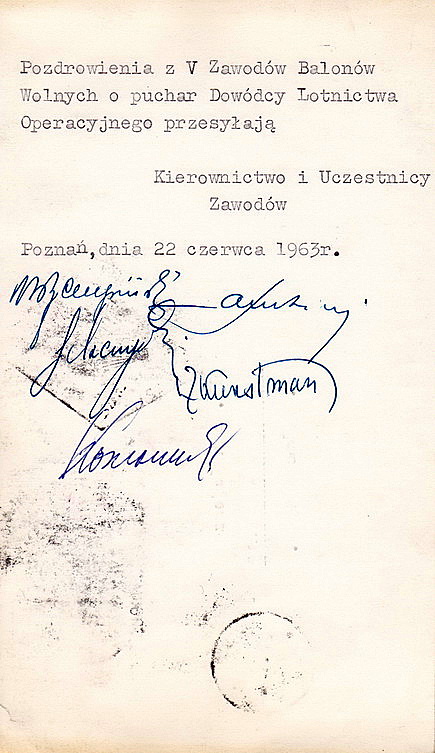 Pozdrowienia z V Zawodów Balonów
Wolnych o puchar Dowódcy Lotnictwa
Operacyjnego przesyłają
Kierownictwo i Uczestnicy
Zawodów
Poznań,dnia 22 czerwca 1963r.
ZKunstman